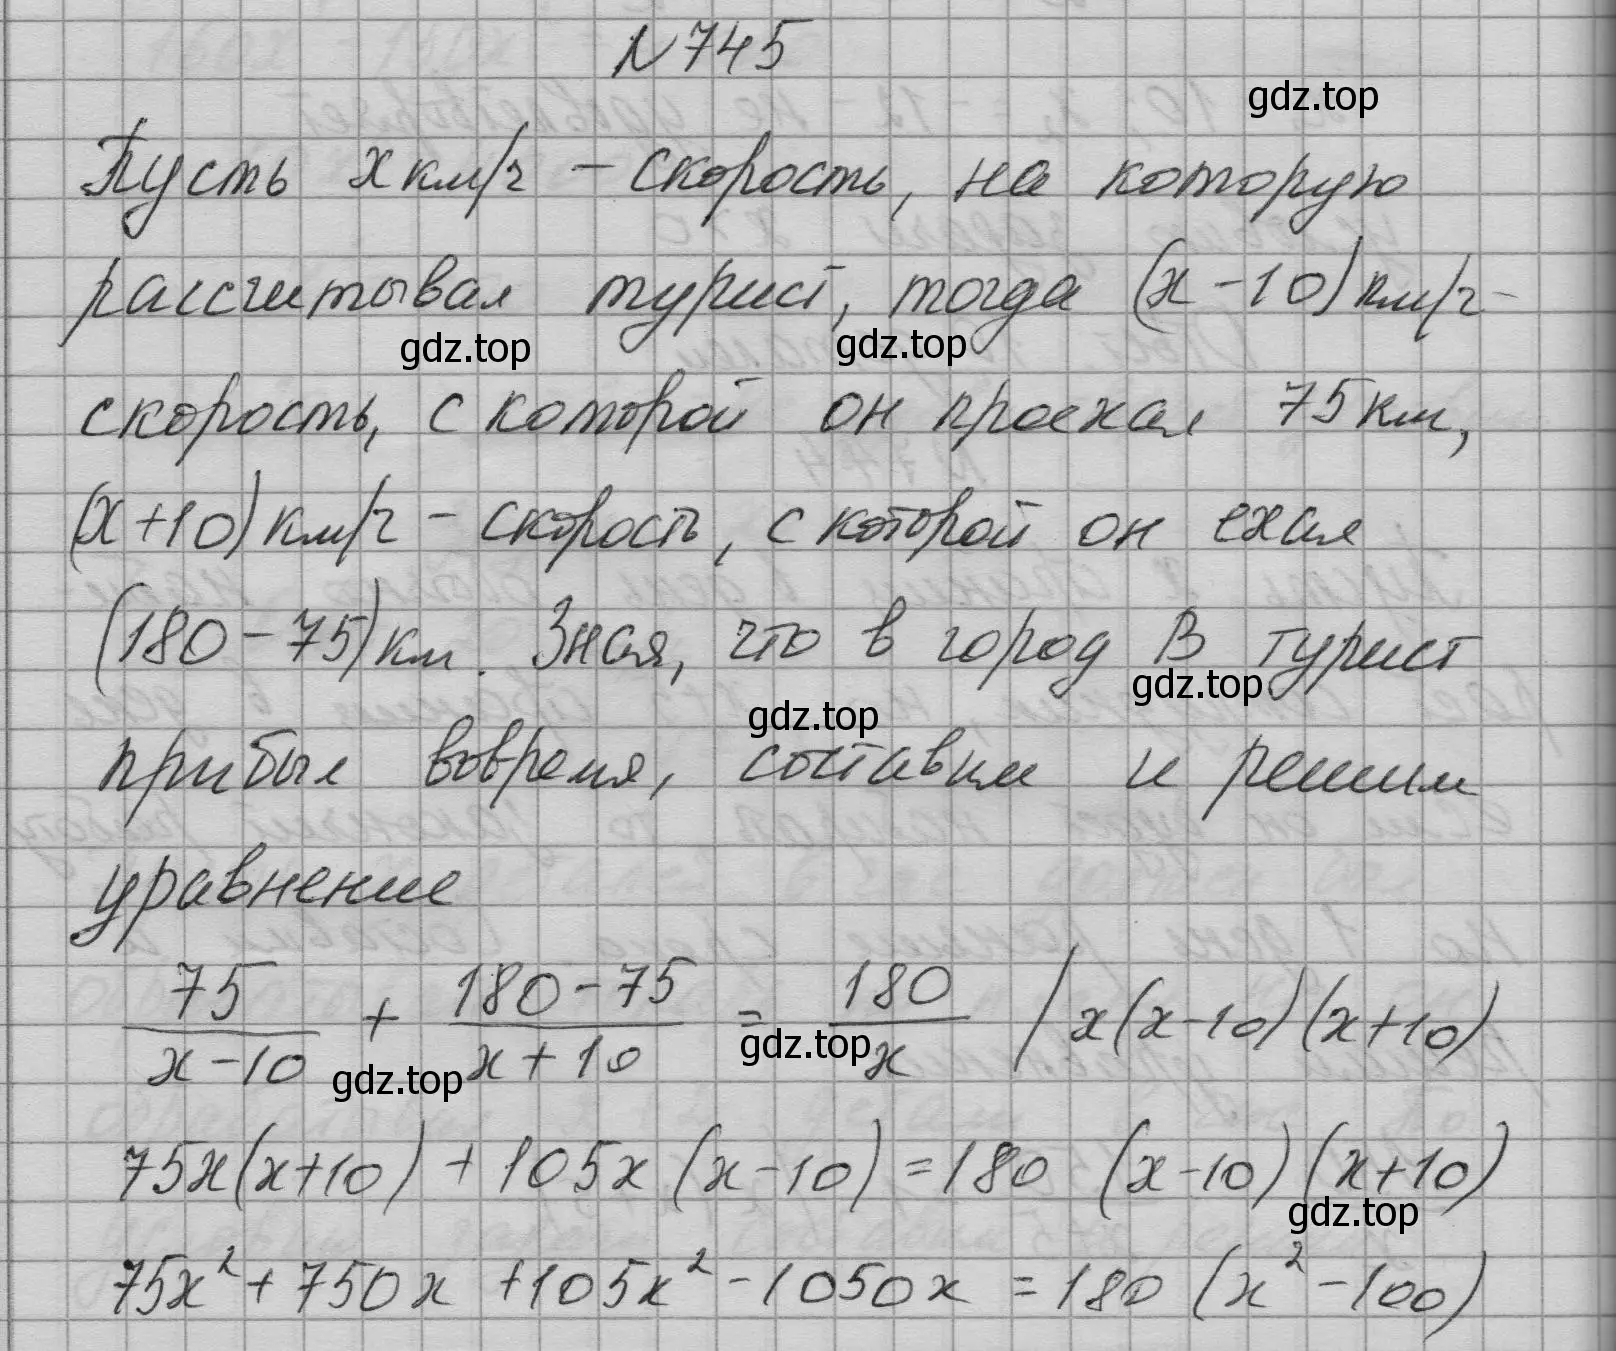 N 745
gdz.top
Пусть x км/ч – скорость, на которую
рассчитывал турист, тогда (x – 10) км/ч –
gdz.top gdz.top
скорость, с которой он проехал 75 км,
(x + 10) км/ч – скорость, с которой он ехал
(180 – 75) км. Зная, что в город В турист
gdz.top gdz.top
прибыл вовремя, составим и решим
уравнение
75/(x – 10) + (180 – 75)/(x + 10) = 180/x | x(x – 10)(x + 10)
gdz.top gdz.top
75x(x + 10) + 105x(x – 10) = 180 (x – 10)(x + 10)
gdz.top
75x² + 750x + 105x² – 1050x = 180 (x² – 100)